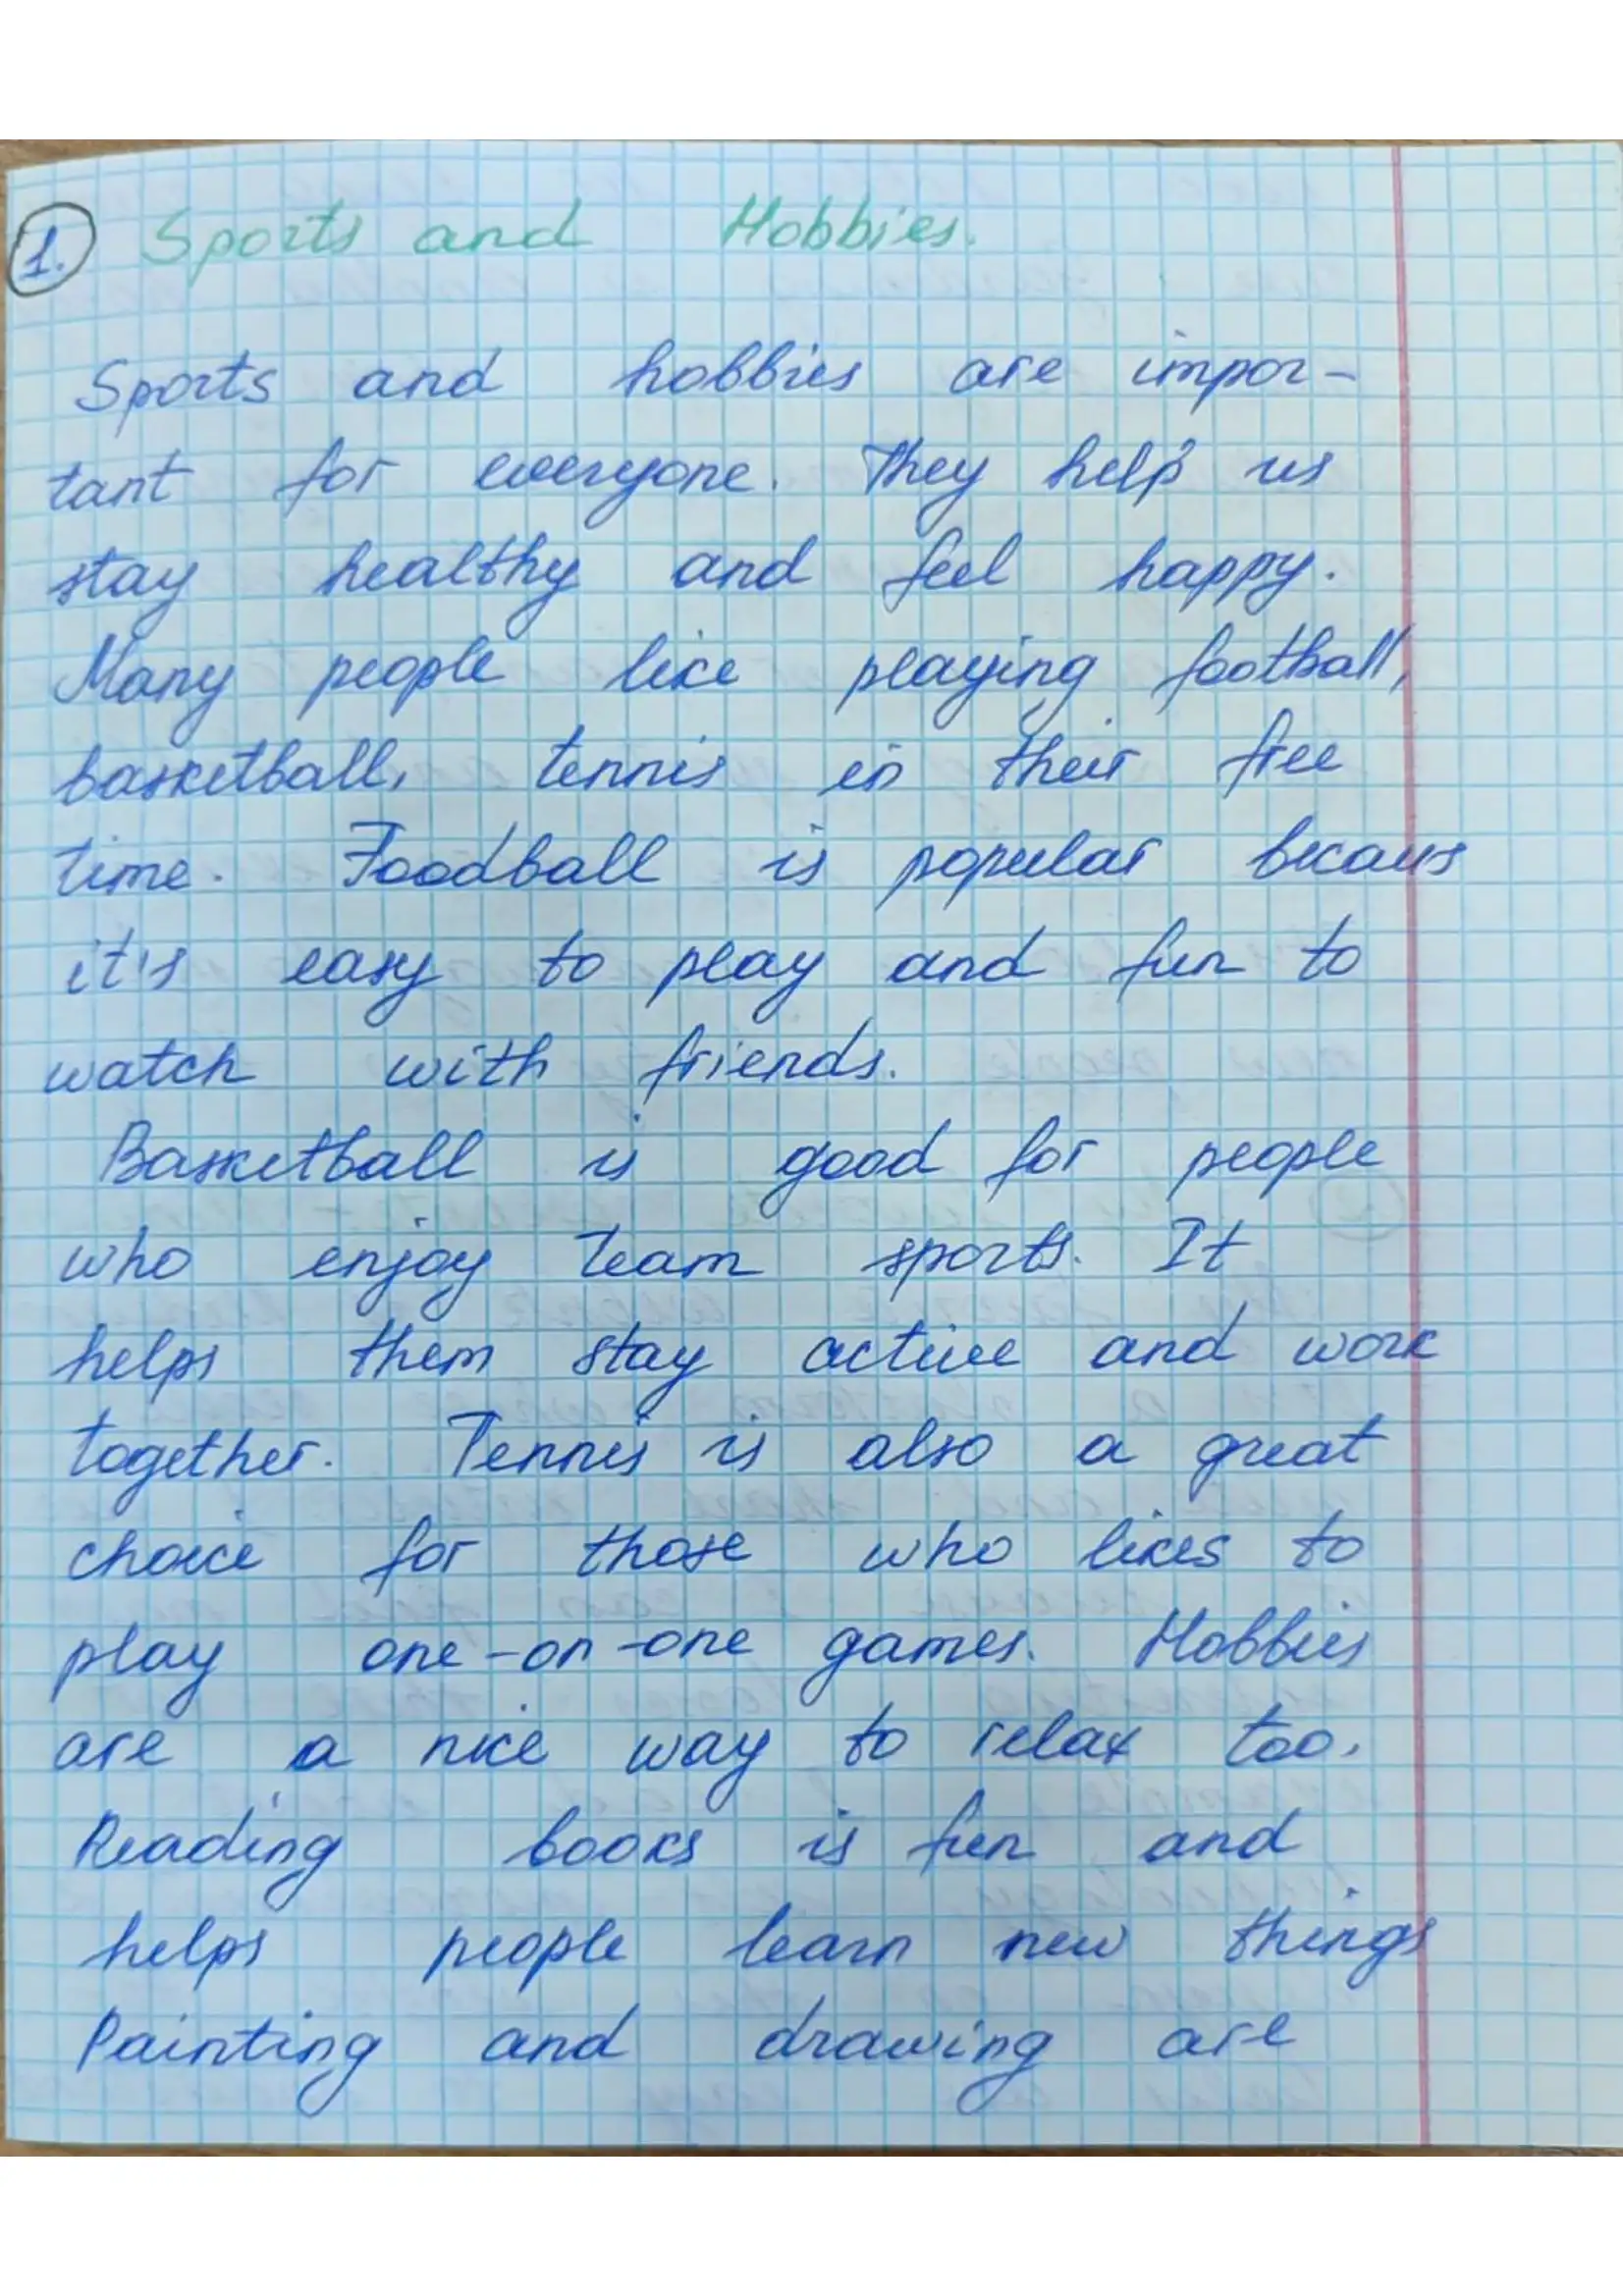 1. Sports and Hobbies.
Sports and hobbies are impor-
tant for everyone. They help us
stay healthy and feel happy.
Many people like playing football,
basketball, tennis in their free
time. Foodball is popular becaus
it's easy to play and fun to
watch with friends.
Basketball is good for people
who enjoy team sports. It
helps them stay active and work
together. Tennis is also a great
choice for those who likes to
play one-on-one games. Hobbies
are a nice way to relax too.
Reading books is fun and
helps people learn new things
Painting and drawing are